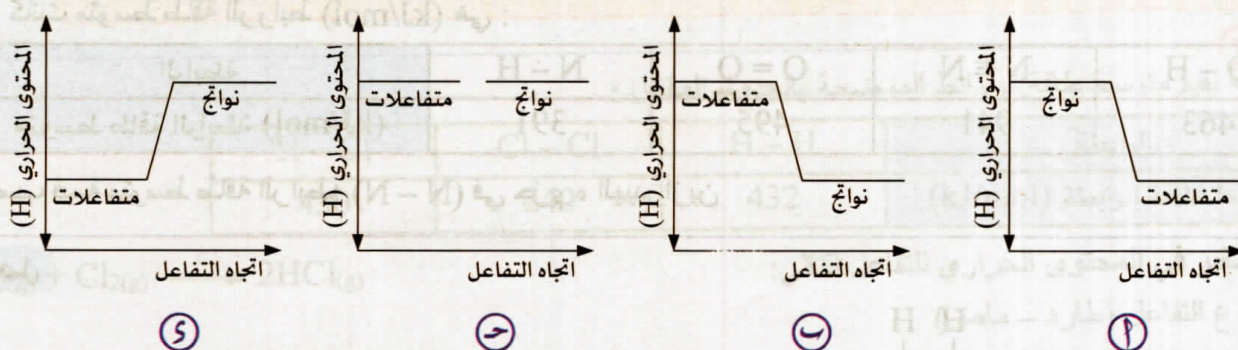 المحتوى الحراري (H)
نواتج
متفاعلات
اتجاه التفاعل
أ
المحتوى الحراري (H)
متفاعلات
نواتج
اتجاه التفاعل
ب
المحتوى الحراري (H)
متفاعلات
نواتج
اتجاه التفاعل
جـ
المحتوى الحراري (H)
نواتج
متفاعلات
اتجاه التفاعل
د